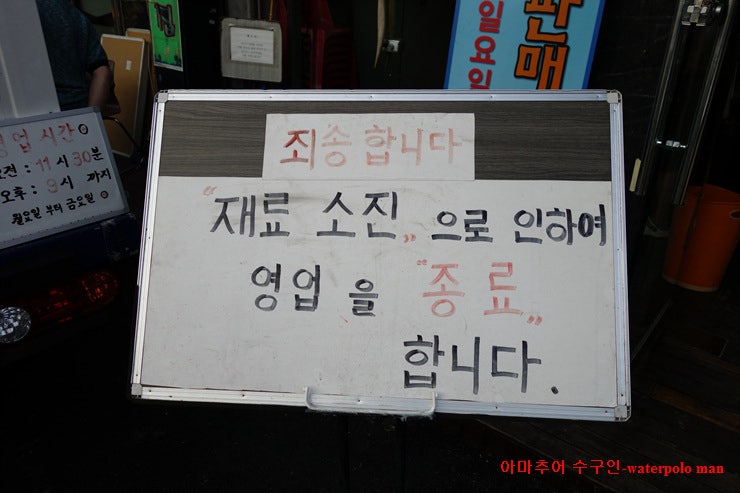 영업 시간
오전 : 11시 30분
오후 : 9시 까지
월요일 부터 금요일
판매
죄송합니다
"재료 소진" 으로 인하여
영업을 "종료"
합니다.
아마추어 수구인-waterpolo man